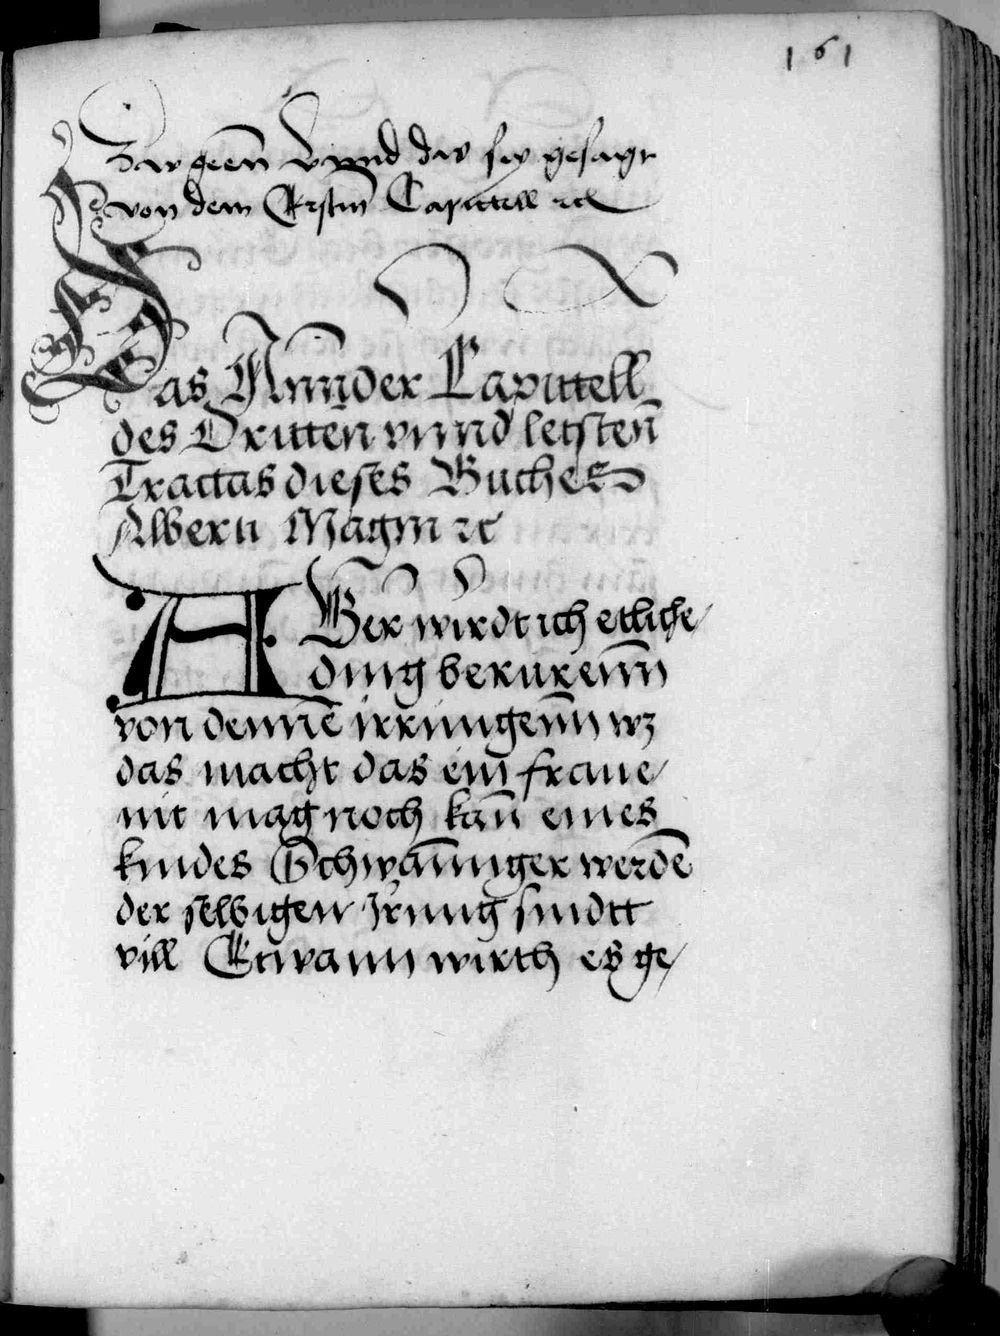 161
Zw geen Vnnd diß sey gesagt
von dem Erstm̄ Capittell etc
Das Annder Capittell
des Dritten vnnd letsten̄
Tractas dieses Buches
Alberti Magni etc
ABer wirdt ich etliche
ding berurenn̄
von denne irrungenn̄ wz
das macht das ein̄ fraue
nit mag noch kan̄ eines
kindes Schwan̄nger werdē
der selbigen Irung sindtt
vill Etwann wirth es ge/